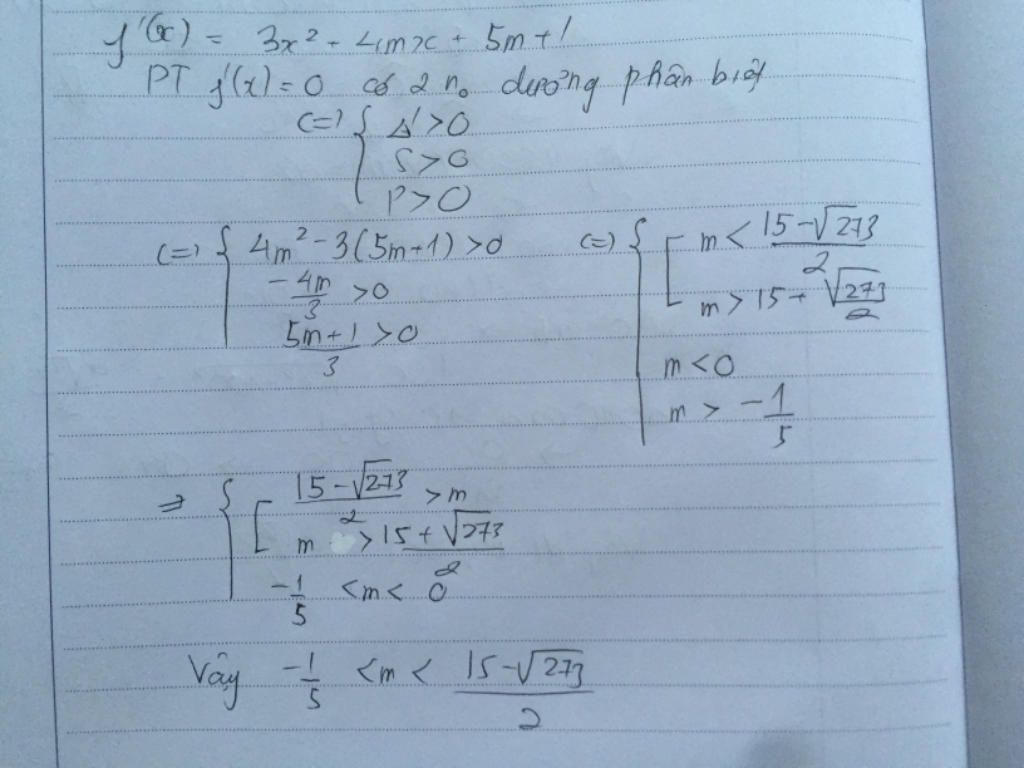 f'(x) = 3x² - 4mx + 5m+1
PT f'(x)=0 có 2 no dương phân biệt
(=) { Δ' > 0
S > 0
P > 0
(=) { 4m² - 3(5m+1) > 0
-4m/3 > 0
5m+1/3 > 0
(=) { [ m < 15-√273/2
m > 15+√273/2
m < 0
m > -1/5
⇒ { [ 15-√273/2 > m
m > 15+√273/2
-1/5 < m < 0
Vậy -1/5 < m < 15-√273/2